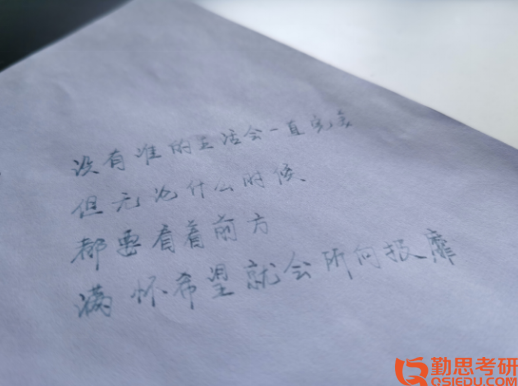 没有谁的生活会一直完美
但无论什么时候
都要看着前方
满怀希望就会所向披靡
勤思考研
QSIEDU.COM